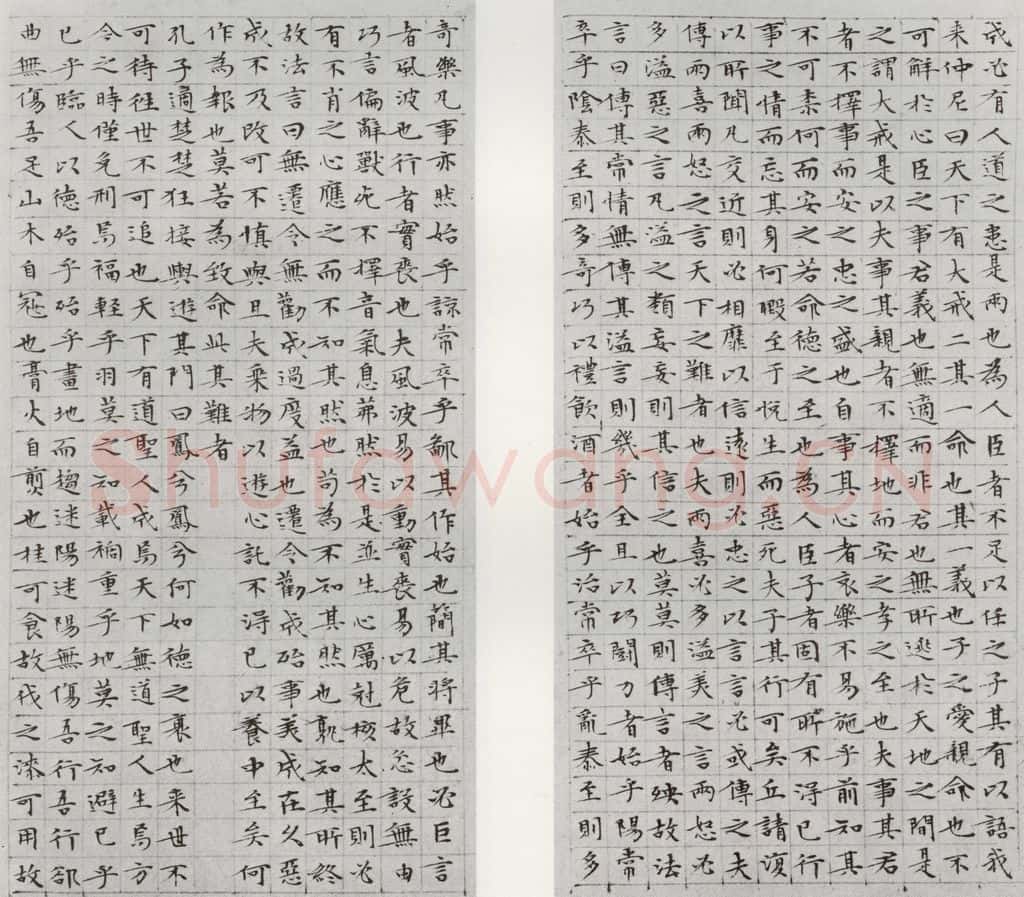 成必有人道之患是兩也為人臣者不足以任之子其有以語我
来仲尼曰天下有大戒二其一命也其一義也子之愛親命也不
可解於心臣之事君義也無適而非君也無所逃於天地之間是
之謂大戒是以夫事其親者不擇地而安之孝之至也夫事其君
者不擇事而安之忠之盛也自事其心者哀樂不易施乎前知其
不可柰何而安之若命德之至也為人臣子者固有所不得已行
事之情而忘其身何暇至于悅生而惡死夫子其行可矣丘請復
以所聞凡交近則必相靡以信遠則必忠之以言言必或傳之夫
傳兩喜兩怒之言天下之難者也夫兩喜必多溢美之言兩怒必
多溢惡之言凡溢之類妄妄則其信之也莫莫則傳言者殃故法
言曰傳其常情無傳其溢言則幾乎全且以巧鬬力者始乎陽常
卒乎陰泰至則多奇巧以禮飲酒者始乎治常卒乎亂泰至則多
奇樂凡事亦然始乎諒常卒乎鄙其作始也簡其將畢也必巨言
者風波也行者實喪也夫風波易以動實喪易以危故忿設無由
巧言偏辭獸死不擇音氣息茀然於是並生心厲剋核太至則必
有不肖之心應之而不知其然也苟為不知其然也孰知其所終
故法言曰無遷令無勸成過度益也遷令勸成殆事美成在久惡
成不及改可不慎與且夫乘物以遊心託不得已以養中至矣何
作為報也莫若為致命此其難者
孔子適楚楚狂接輿遊其門曰鳳兮鳳兮何如德之衰也来世不
可待往世不可追也天下有道聖人成焉天下無道聖人生焉方
今之時僅免刑焉福輕乎羽莫之知載禍重乎地莫之知避已乎
已乎臨人以德殆乎殆乎畫地而趨迷陽迷陽無傷吾行吾行郤
曲無傷吾足山木自寇也膏火自煎也桂可食故伐之漆可用故
Shufawang.CN